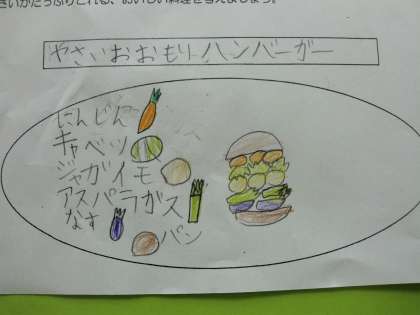 さいがたっぷりとれる、おいしい料理を考えましょう。
やさいおおもりハンバーガー
にんじん
キャベツ
ジャガイモ
アスパラガス
なす
パン